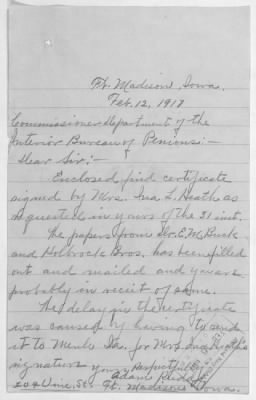 Ft. Madison, Iowa.
Feb. 12, 1917
Commissioner Department of the
Interior Bureau of Penions:-
Dear Sir:-
Enclosed find certificate
signed by Mrs. Ina L. Heath as
requested in yours of the 31 inst.
The papers from Dr. E. M. Buck
and Holbrock Bros. has been filled
out and mailed and you are
probably in reciet of same.
The delay in the certificate
was caused by having to send
it to Menlo Ia. for Mrs. Ina Heath's
signature
yours Respectfully
Adam
Vine St. Ft. Madison Iowa.